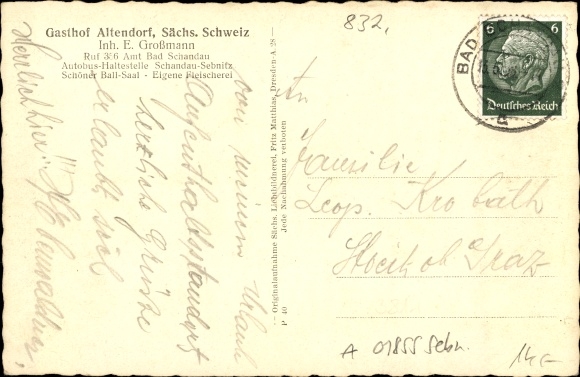 Gasthof Altendorf, Sächs. Schweiz
Inh. E. Großmann
Ruf 376 Amt Bad Schandau
Autobus-Haltestelle Schandau-Sebnitz
Schöner Ball-Saal - Eigene Fleischerei
832,
6 6
Deutsches Reich
BAD SCH
a
Herrlich hier!!!
von meinem Urlaub
Aufenthaltsstandort
herzliche Grüsse
erlaubt sich
Originalaufnahme Sächs. Lichtbildnerei, Fritz Matthias, Dresden A. 28
Jede Nachahmung verboten
P 40
An
Familie
Leop. Krobath
Hoeik ob Graz
A 01855 Sebn.
14,-